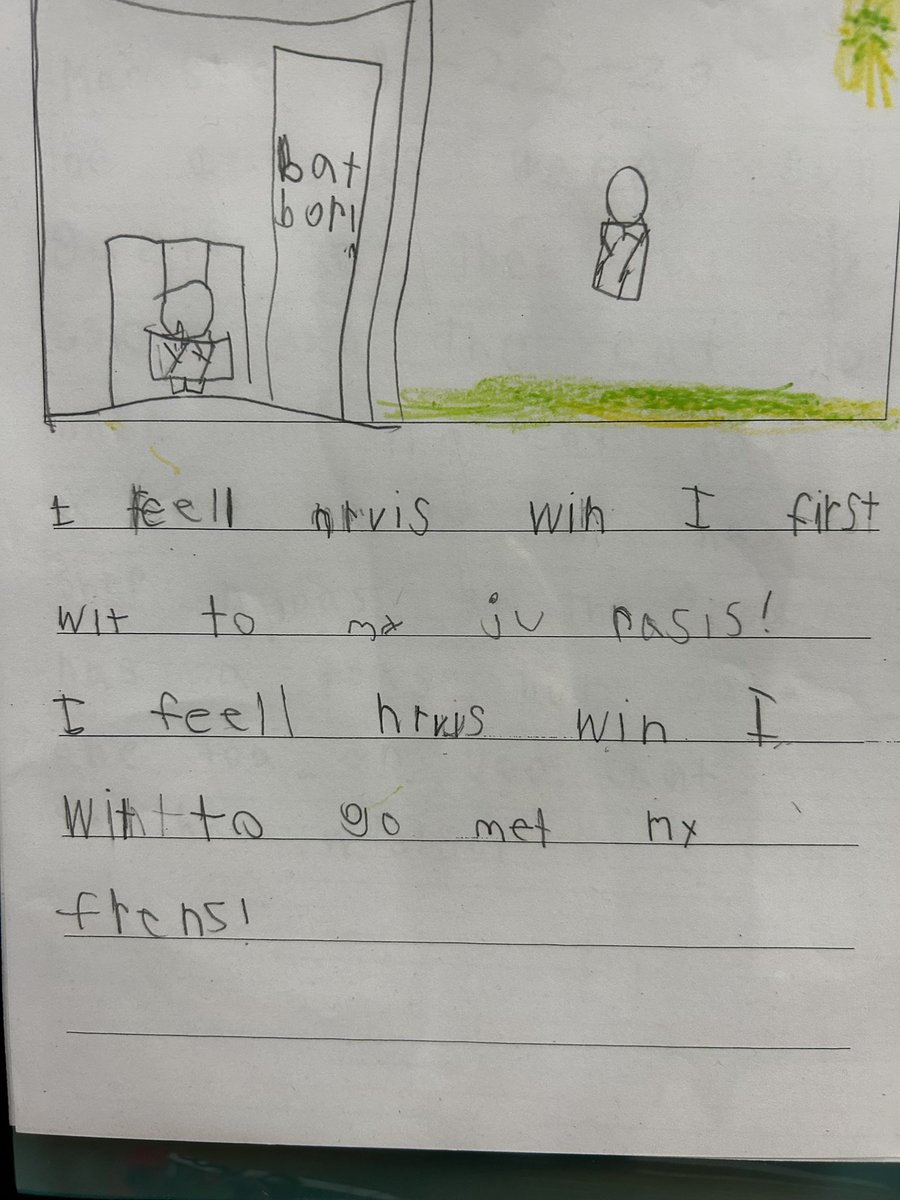 bat
bori
I feell nrvis win I first
wit to mx ju rasis!
I feell nrvis win I
wint to go met mx
frens!